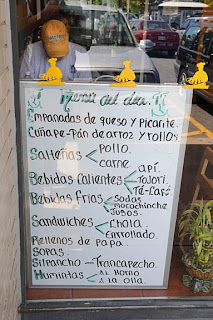 Menú del día.
Empanadas de queso y Picarite.
Cuñape-Pán de arroz y rollos
Salteñas < pollo.
carne
Bebidas calientes < apí.
Tojorí
Té-Café
Bebidas Frias < sodas
mocochinche
Jugos.
Sandwiches < Chola
Enrollado.
Rellenos de Papa.
Sopas
Silpancho - Trancapecho.
Humintas < Al Horno
a la olla.